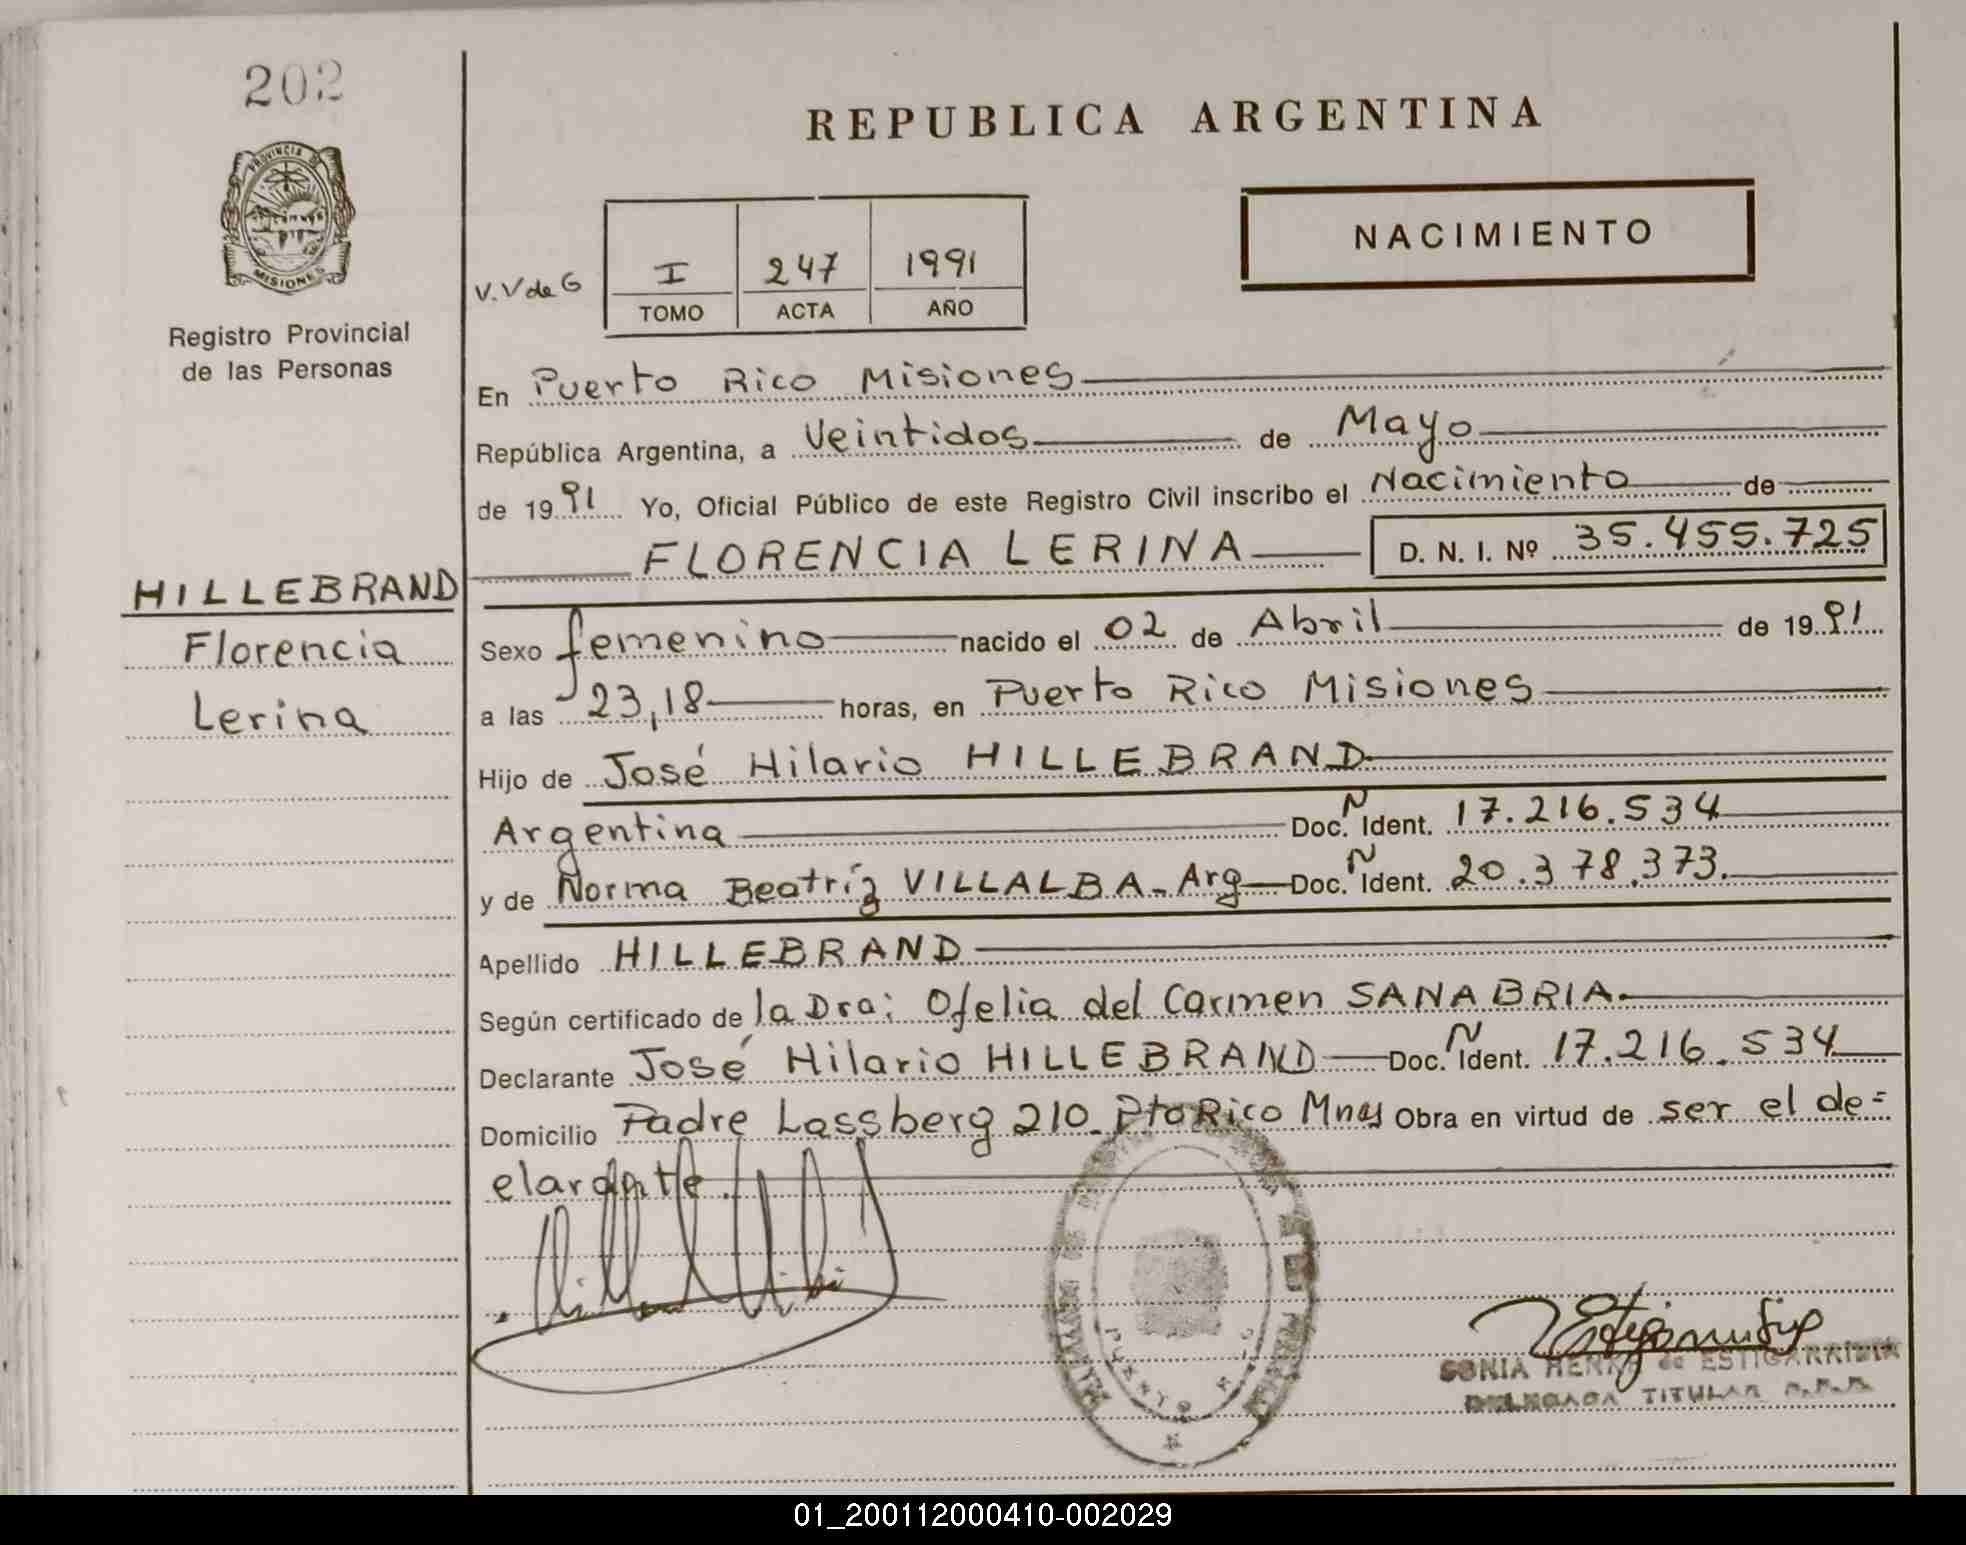 202
PROVINCIA DE
MISIONES
Registro Provincial
de las Personas
HILLEBRAND
Florencia
Lerina
REPUBLICA ARGENTINA
NACIMIENTO
V.V de G
I 247 1991
TOMO ACTA AÑO
En Puerto Rico Misiones
República Argentina, a Veintidos de Mayo
de 1991 Yo, Oficial Público de este Registro Civil inscribo el Nacimiento de
FLORENCIA LERINA D. N. I. Nº 35.455.725
Sexo femenino nacido el 02 de Abril de 1991
a las 23,18 horas, en Puerto Rico Misiones
Hijo de José Hilario HILLEBRAND
Argentina Doc. Ñ Ident. 17.216.534
y de Norma Beatríz VILLALBA - Arg Doc. Ñ Ident. 20.378.373.
Apellido HILLEBRAND
Según certificado de la Dra: Ofelia del Carmen SANABRIA.
Declarante José Hilario HILLEBRAND Doc. Ñ Ident. 17.216.534
Domicilio Padre Lassberg 210 Pto Rico Mnes Obra en virtud de ser el de=
elarante.
PUERTO RICO
SONIA de ESTIGARRIBIA
DELEGADA TITULAR R.P.P.
01_200112000410-002029